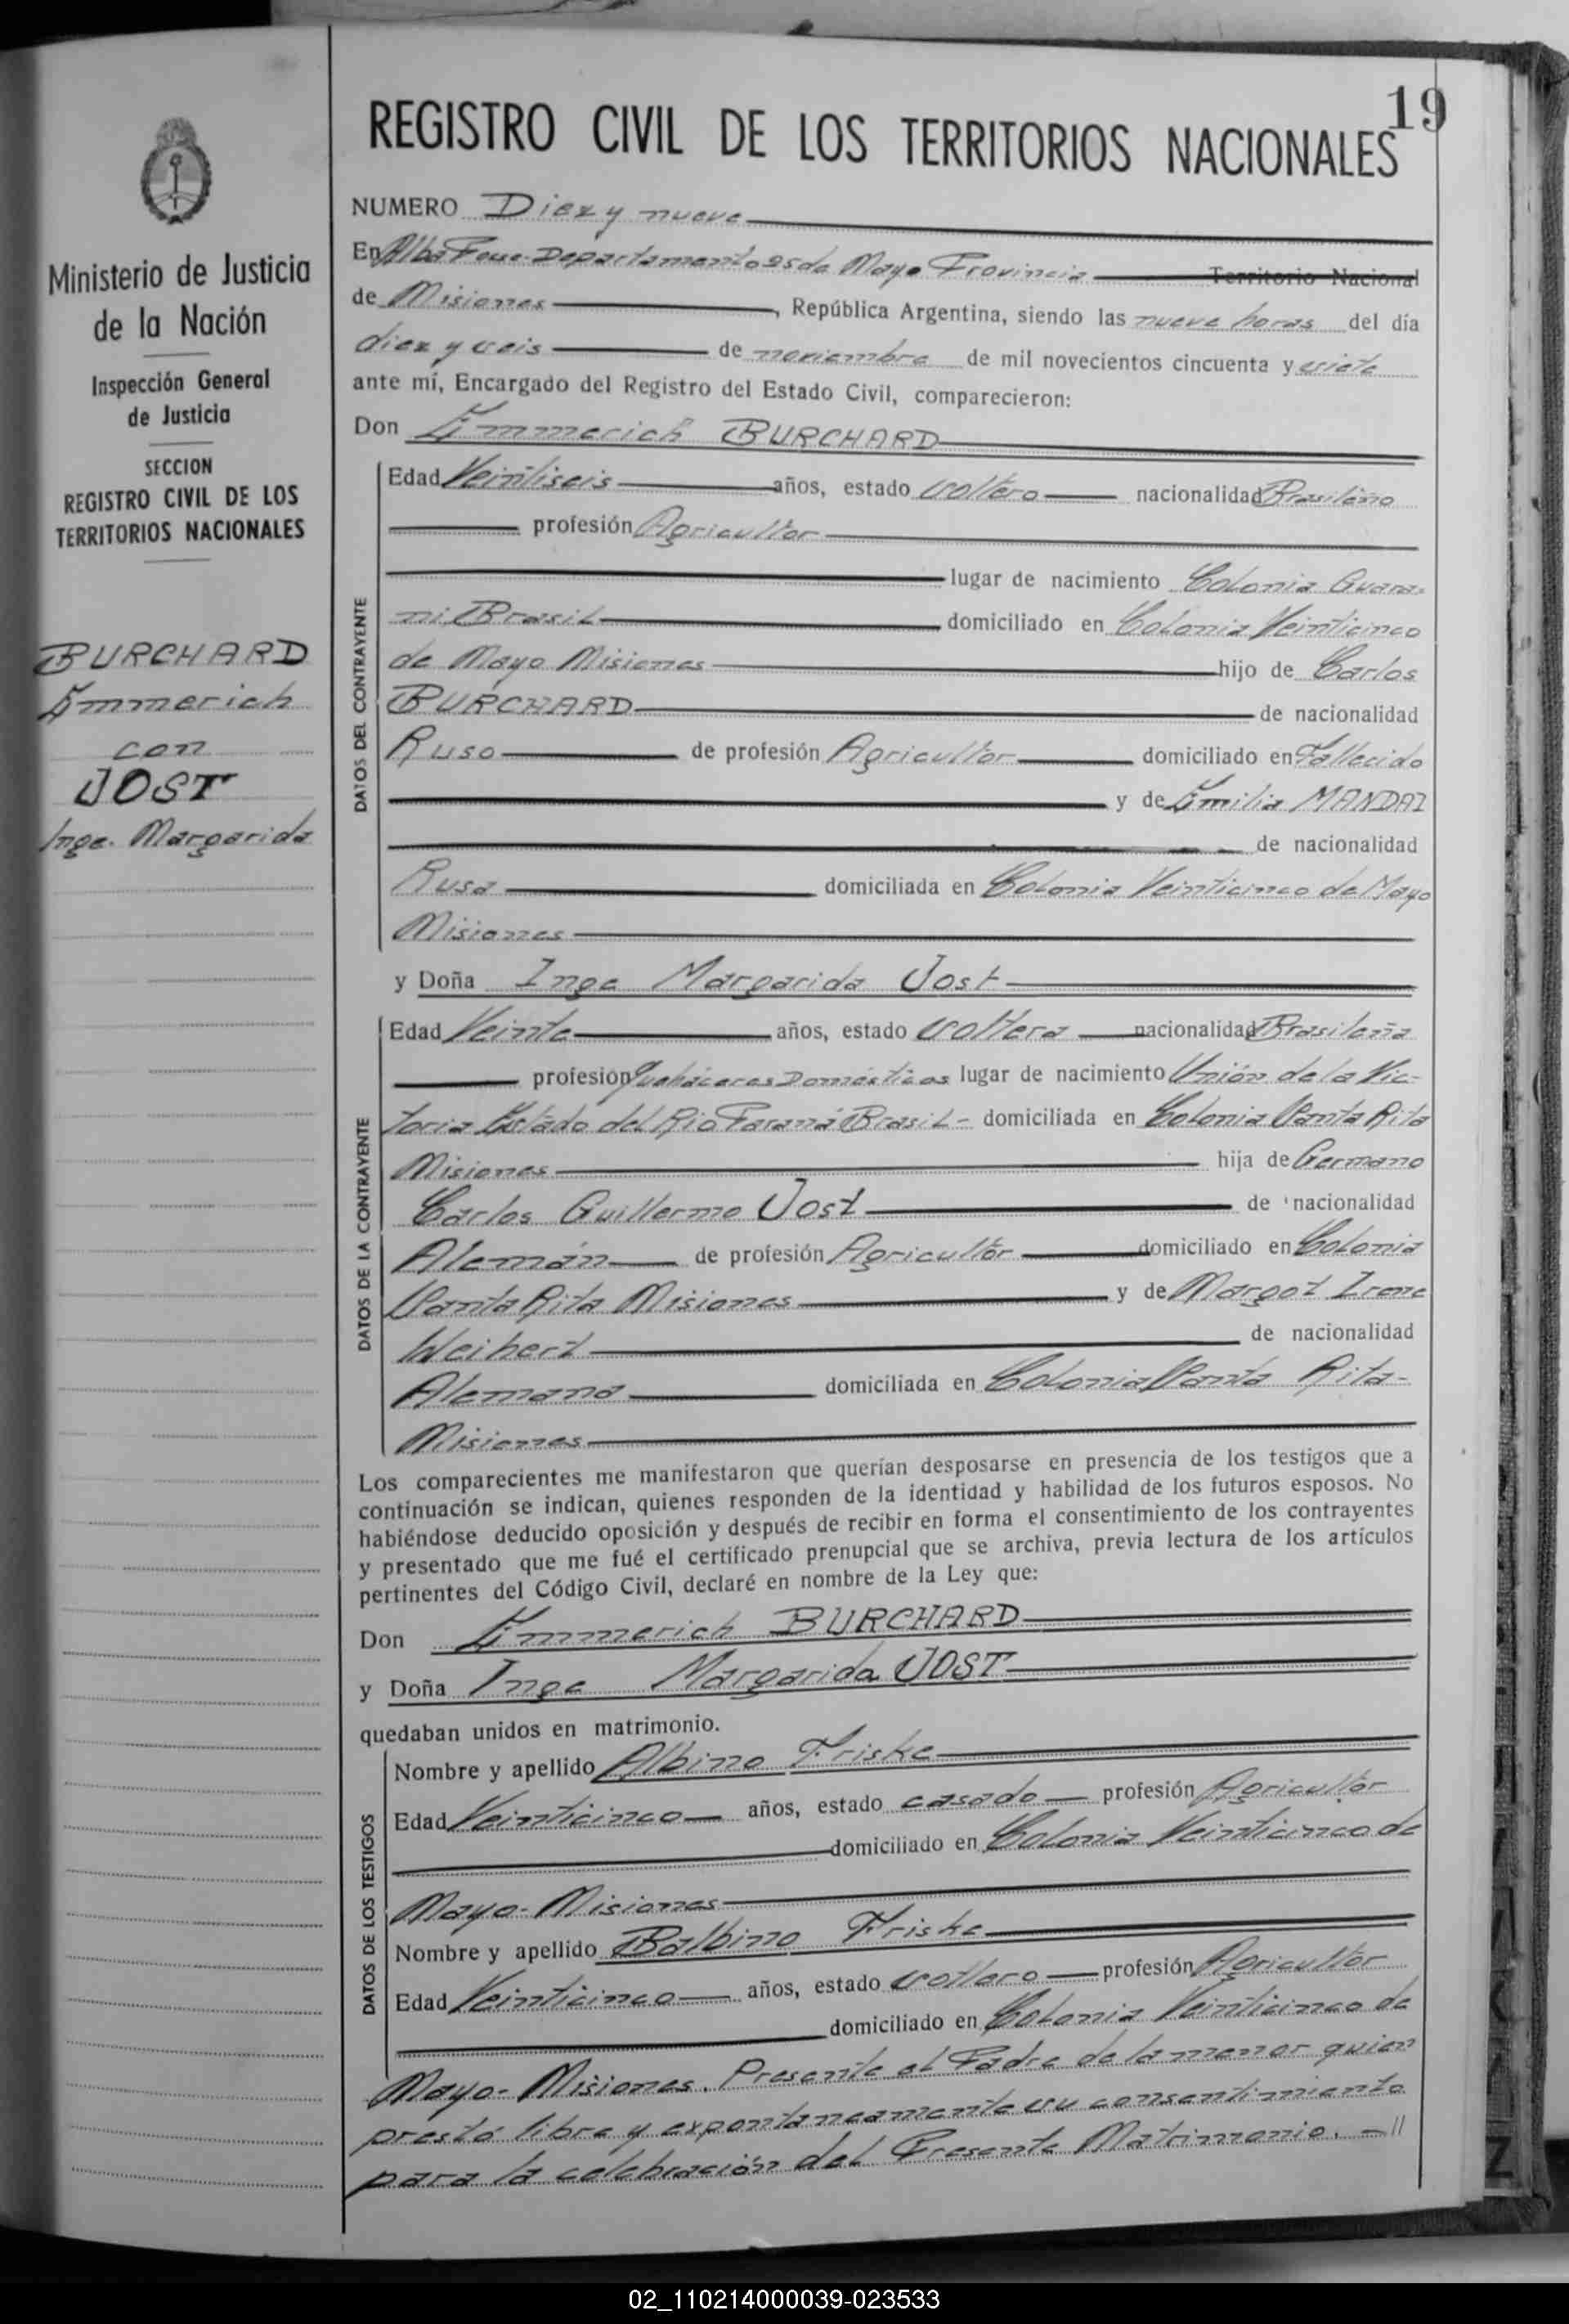 19
REGISTRO CIVIL DE LOS TERRITORIOS NACIONALES
Ministerio de Justicia
de la Nación
Inspección General
de Justicia
SECCION
REGISTRO CIVIL DE LOS
TERRITORIOS NACIONALES
BURCHARD
Emmerich
con
JOST
Inge. Margarida
NUMERO Diez y nueve
En Alba Posse-Departamento 25 de Mayo Provincia Territorio Nacional
de Misiones, República Argentina, siendo las nueve horas del día
diez y seis de noviembre de mil novecientos cincuenta y siete
ante mí, Encargado del Registro del Estado Civil, comparecieron:
Don Emmerich BURCHARD
DATOS DEL CONTRAYENTE
Edad Veintiseis años, estado soltero nacionalidad Brasileño
profesión Agricultor
lugar de nacimiento Colonia Guara-
ni Brasil domiciliado en Colonia Veinticinco
de Mayo Misiones hijo de Carlos
BURCHARD de nacionalidad
Ruso de profesión Agricultor domiciliado en Fallecido
y de Emilia MANDAI
de nacionalidad
Rusa domiciliada en Colonia Veinticinco de Mayo
Misiones
y Doña Inge Margarida Jost
DATOS DE LA CONTRAYENTE
Edad Veinte años, estado soltera nacionalidad Brasileña
profesión Quehaceres Domésticos lugar de nacimiento Unión de la Vic-
toria Estado del Rio Paraná Brasil- domiciliada en Colonia Santa Rita
Misiones hija de Germano
Carlos Guillermo Jost de nacionalidad
Alemán de profesión Agricultor domiciliado en Colonia
Santa Rita Misiones y de Margot Irene
Weihert de nacionalidad
Alemana domiciliada en Colonia Santa Rita-
Misiones
Los comparecientes me manifestaron que querían desposarse en presencia de los testigos que a
continuación se indican, quienes responden de la identidad y habilidad de los futuros esposos. No
habiéndose deducido oposición y después de recibir en forma el consentimiento de los contrayentes
y presentado que me fué el certificado prenupcial que se archiva, previa lectura de los artículos
pertinentes del Código Civil, declaré en nombre de la Ley que:
Don Emmerich BURCHARD
y Doña Inge Margarida JOST
quedaban unidos en matrimonio.
DATOS DE LOS TESTIGOS
Nombre y apellido Albino Friske
Edad Veinticinco años, estado casado profesión Agricultor
domiciliado en Colonia Veinticinco de
Mayo- Misiones
Nombre y apellido Balbino Friske
Edad Veinticinco años, estado soltero profesión Agricultor
domiciliado en Colonia Veinticinco de
Mayo- Misiones. Presente el Padre de la menor quien
prestó libre y expontaneamente su consentimiento
para la celebración del Presente Matrimonio.-//
02_110214000039-023533